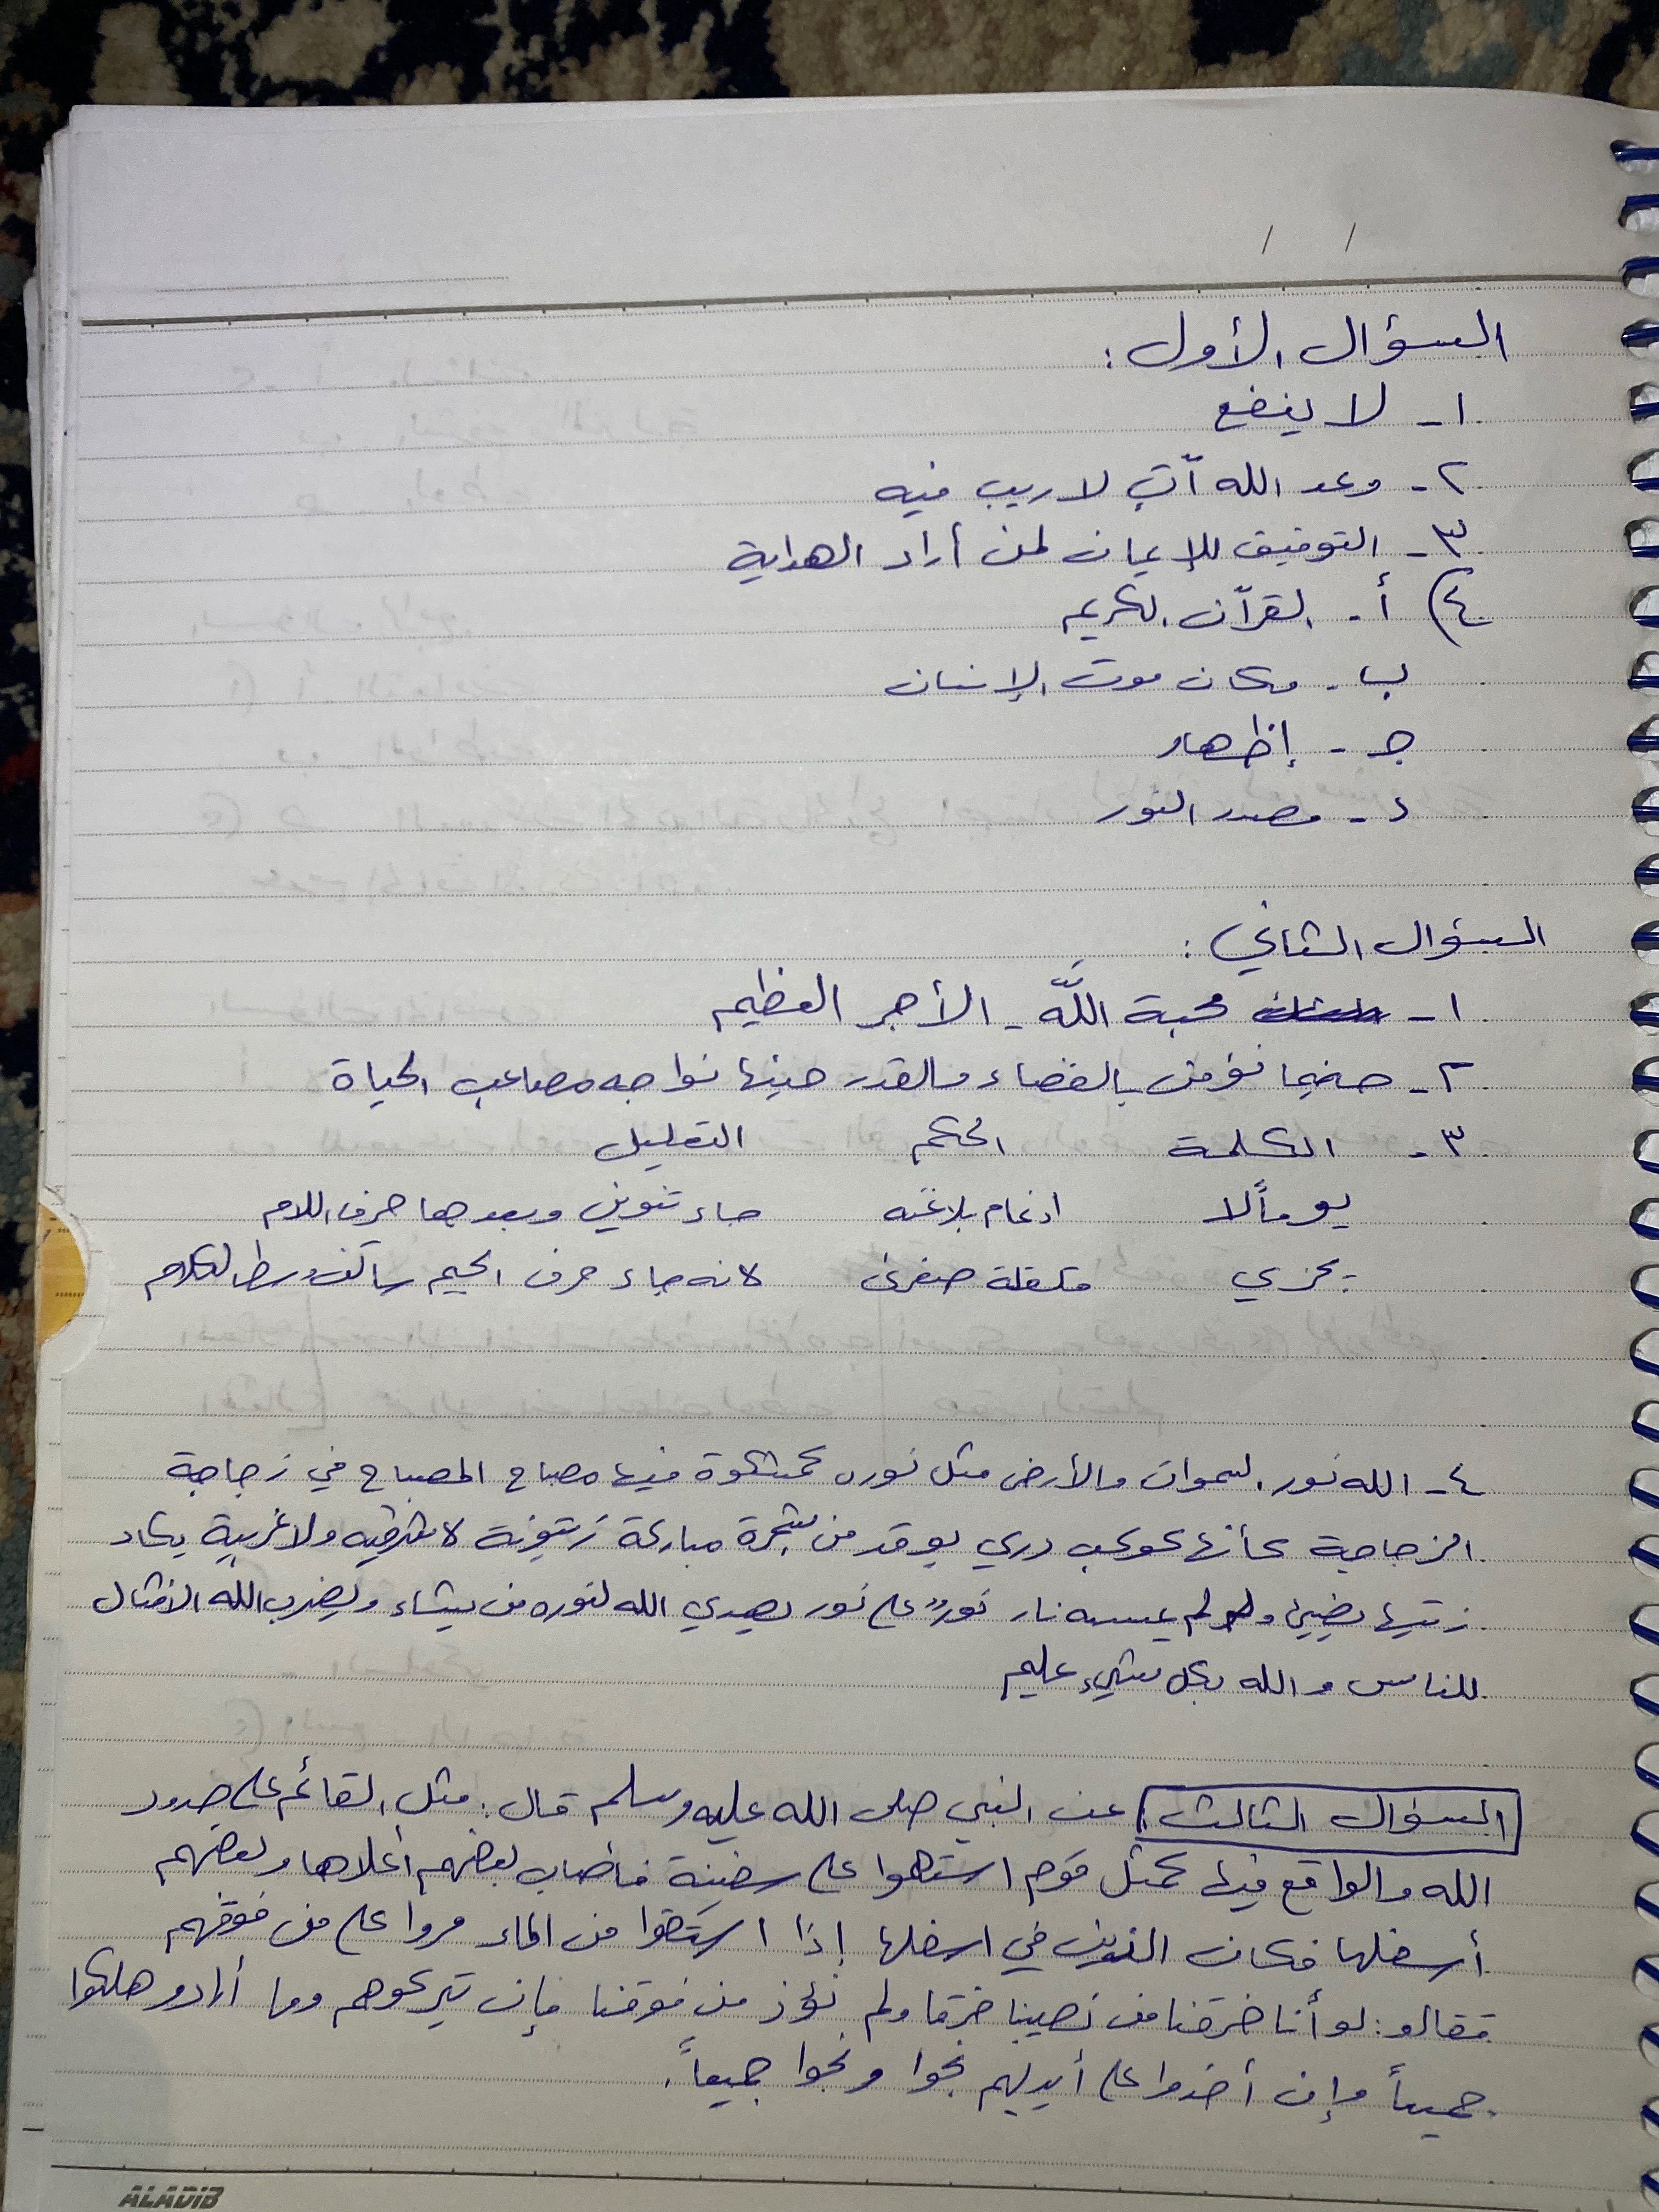 السؤال الأول :
١ - لا ينفع
٢ - وعد الله آتٍ لا ريب فيه
٣ - التوفيق للإيمان لمن أراد الهداية
٤) أ - القرآن الكريم
ب - مكان موت الإنسان
جـ - إظهار
د - مصدر النور
السؤال الثاني :
١ - محبة اللَّه - الأجر العظيم
٢ - حينما نؤمن بالقضاء والقدر حينها نواجه مصاعب الحياة
٣ - الكلمة الحكم التعليل
يوماً لا ادغام بلا غنه جاء تنوين وبعدها حرف اللام
يجزي قلقلة صغرى لانه جاء حرف الجيم ساكن وسط الكلام
٤ - الله نور السموات والأرض مثل نوره كمشكوة فيها مصباح المصباح في زجاجة
الزجاجة كأنها كوكب دري يوقد من شجرة مباركة زيتونة لا شرقيه ولا غربية يكاد
زيتها يضيئ ولو لم يمسسه نار نورٌ على نور يهدي الله لنوره من يشاء ويضرب الله الامثال
للناس والله بكل شيء عليم
السؤال الثالث عن النبي صلى الله عليه وسلم قال : مثل القائم على حدود
الله والواقع فيها كمثل قوم استهموا على سفينة فأصاب بعضهم أعلاها وبعضهم
أسفلها فكان الذين في اسفلها إذا استقوا من الماء مروا على من فوقهم
فقالو : لو أنا خرقنا من نصيبنا خرقا ولم نؤذ من فوقنا فإن تركوهم وما أرادو هلكوا
جميعاً وإن أخذوا على أيديهم نجوا ونجوا جميعاً .
ALADIB